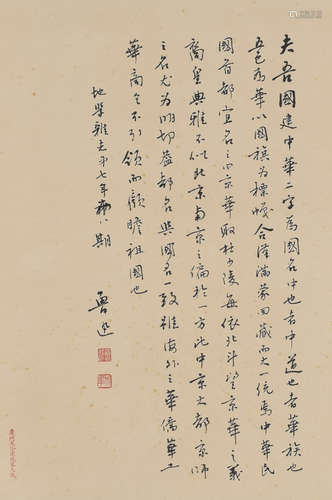 夫吾國建中華二字為國名中也者中道也者華族也
五色為華以國族為標幟合漢滿蒙回藏而大一統焉中華民
國首都宜名之曰京華取杜少陵每依北斗望京華之義
裔皇典雅不似北京南京之偏於一方比中京大都京師
之名尤為明切蓋都名與國名一致雖海外之華僑華工
華商亦引領而顧瞻祖國也
地學雜志第七年第八期
魯迅